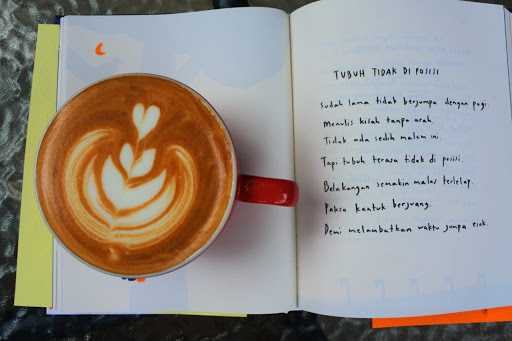 TUBUH TIDAK DI POSISI
Sudah lama tidak berjumpa dengan pagi.
Menulis kisah tanpa arah.
Tidak ada sedih malam ini.
Tapi tubuh terasa tidak di posisi.
Belakangan semakin malas terlelap.
Paksa kantuk berjuang.
Demi melambatkan waktu jumpa esok.